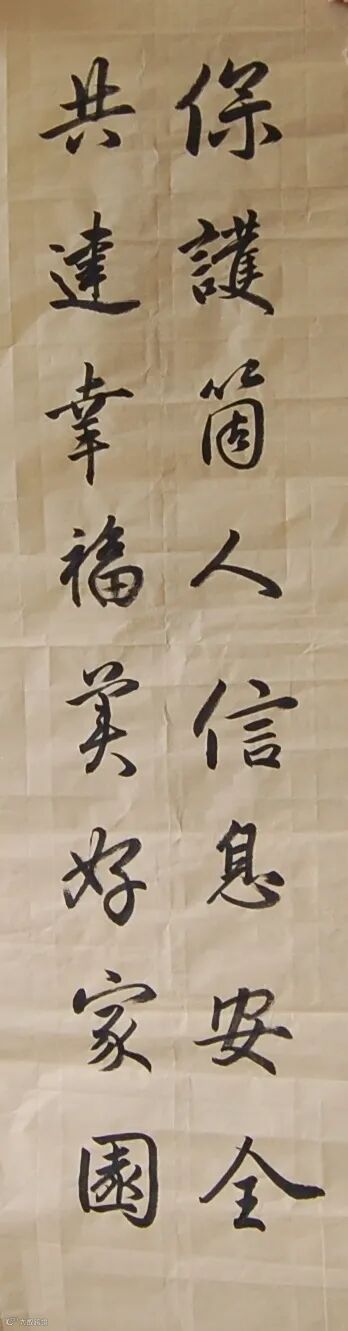 保護箇人信息安全
共建幸福美好家園